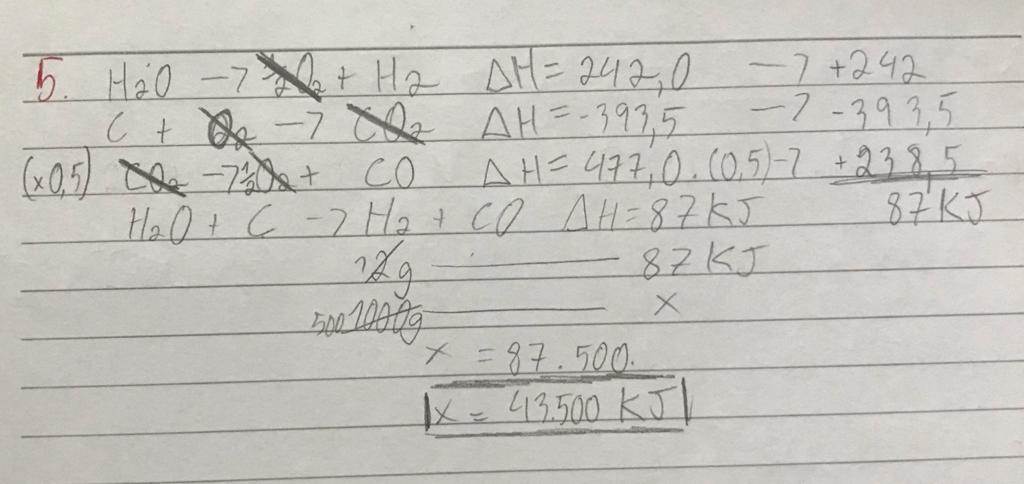 5. H2O → 1/2O2 + H2 ΔH = 242,0 → +242
C + O2 → CO2 ΔH = -393,5 → -393,5
(x0,5) CO2 → 1/2O2 + CO ΔH = 477,0.(0,5) → +238,5
H2O + C → H2 + CO ΔH = 87KJ 87KJ
2g 87KJ
500 1000g x
x = 87.500.
x = 43.500 KJ